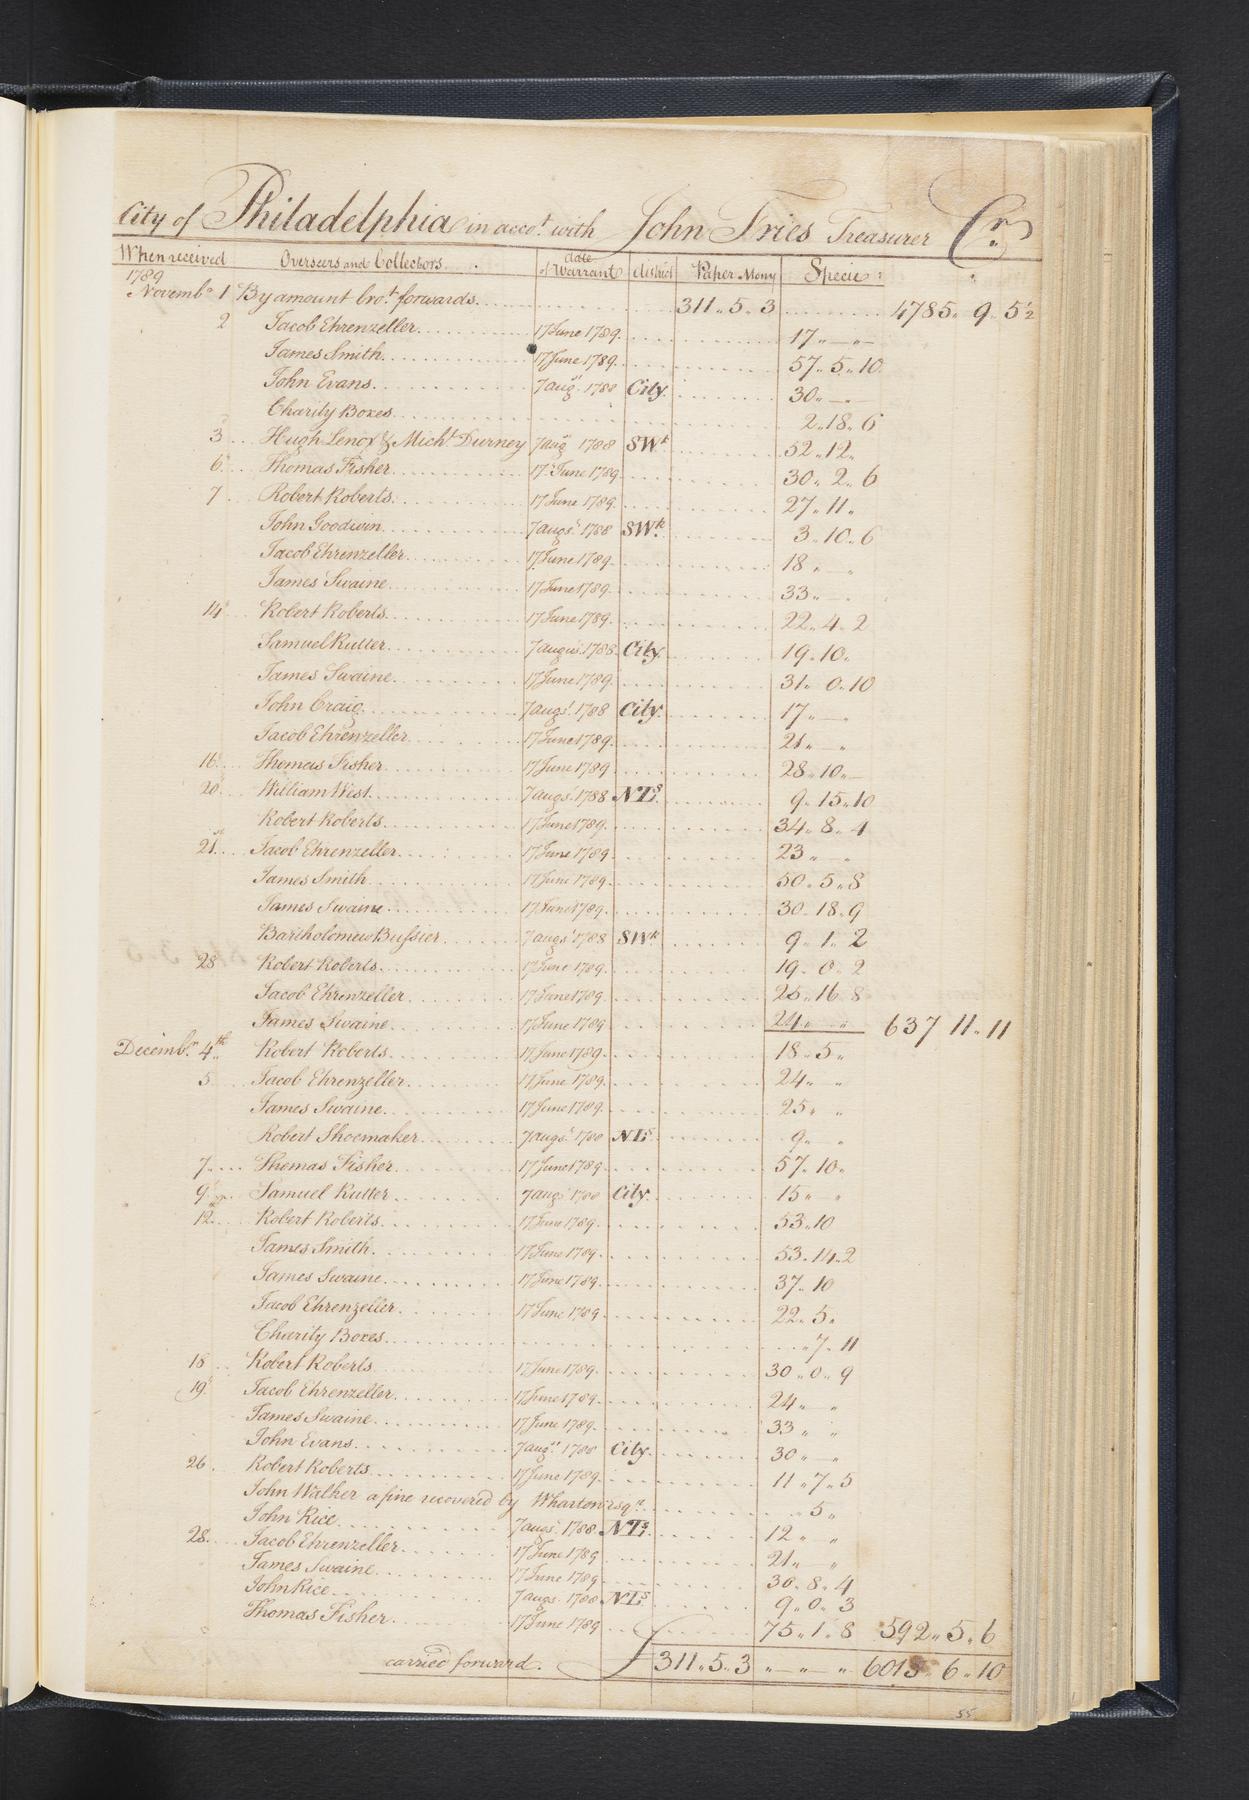 City of Philadelphia in acco.t with John Fries Treasurer Cr.
When received Overseers and Collectors. date of Warrant district Paper Mony Specie
1789
Novemb.r 1 By amount bro.t forwards 311.. 5.. 3 4785.. 9.. 5½
2 Jacob Ehrenzeller 17 June 1789. 17..—..—
James Smith 17 June 1789. 57.. 5.. 10
John Evans 7 aug.t 1788 City 30..—
Charity Boxes 2..18.. 6
3 Hugh Lenox & Mich.l Durney 7 aug 1788 SW.k 52..12..
6 Thomas Fisher 17 June 1789 30.. 2.. 6
7 Robert Roberts 17 June 1789. 27.. 11..
John Goodwin 7 augs.t 1788 SW.k 3..10..6
Jacob Ehrenzeller 17 June 1789. 18..—..
James Swaine 17 June 1789. 33..—..
14 Robert Roberts 17 June 1789. 22.. 4.. 2
Samuel Rutter 7 augus.t 1788 City 19..10..
James Swaine 17 June 1789. 31.. 0..10
John Craig 7 augs.t 1788 City. 17..—..
Jacob Ehrenzeller 17 June 1789. 21..—..
16 Thomas Fisher 17 June 1789 28..10..—
20 William West 7 augs.t 1788 NL.s 9..15..10
Robert Roberts 17 June 1789. 34.. 8.. 4
21st Jacob Ehrenzeller 17 June 1789 23..—..
James Smith 17 June 1789. 50.. 5.. 8
James Swaine 17 June 1789. 30..18..9
Bartholomew Bussier 7 augs.t 1788 SW.k 9.. 1.. 2
28 Robert Roberts 17 June 1789. 19.. 0.. 2
Jacob Ehrenzeller 17 June 1789. 25..16 8
James Swaine 17 June 1789 24..—.. 637 11..11
Decemb.r 4th Robert Roberts 17 June 1789. 18.. 5..
5 Jacob Ehrenzeller 17 June 1789. 24.. ..
James Swaine 17 June 1789. 25.. ..
Robert Shoemaker 7 augs.t 1788 NL.s 9.. ..
7 Thomas Fisher 17 June 1789 57.. 10..
9 Samuel Rutter 7 augs.t 1788 City 15..—..
12 Robert Roberts 17 June 1789. 53..10
James Smith 17 June 1789. 53..14..2
James Swaine 17 June 1789. 37..10
Jacob Ehrenzeller 17 June 1789 22.. 5..
Charity Boxes ..7.. 11
18 Robert Roberts 17 June 1789. 30..0.. 9
19 Jacob Ehrenzeller 17 June 1789. 24..—..
James Swaine 17 June 1789. 33.. ..
John Evans 7 aug.st 1788 City. 30..—..
26 Robert Roberts 17 June 1789. 11..7..5
John Walker a fine recovered by Wharton esq.r ..5..
John Rice 7 augs.t 1788. NL.s 12.. ..
28 Jacob Ehrenzeller 17 June 1789 21..—..
James Swaine 17 June 1789. 30..8.. 4
John Rice 7 augs.t 1788 NL.s 9..0.. 3
Thomas Fisher 17 June 1789 75..1..8 592.. 5.. 6
carried forward. £ 311..5..3 ..—..—.. 6015.. 6..10
55